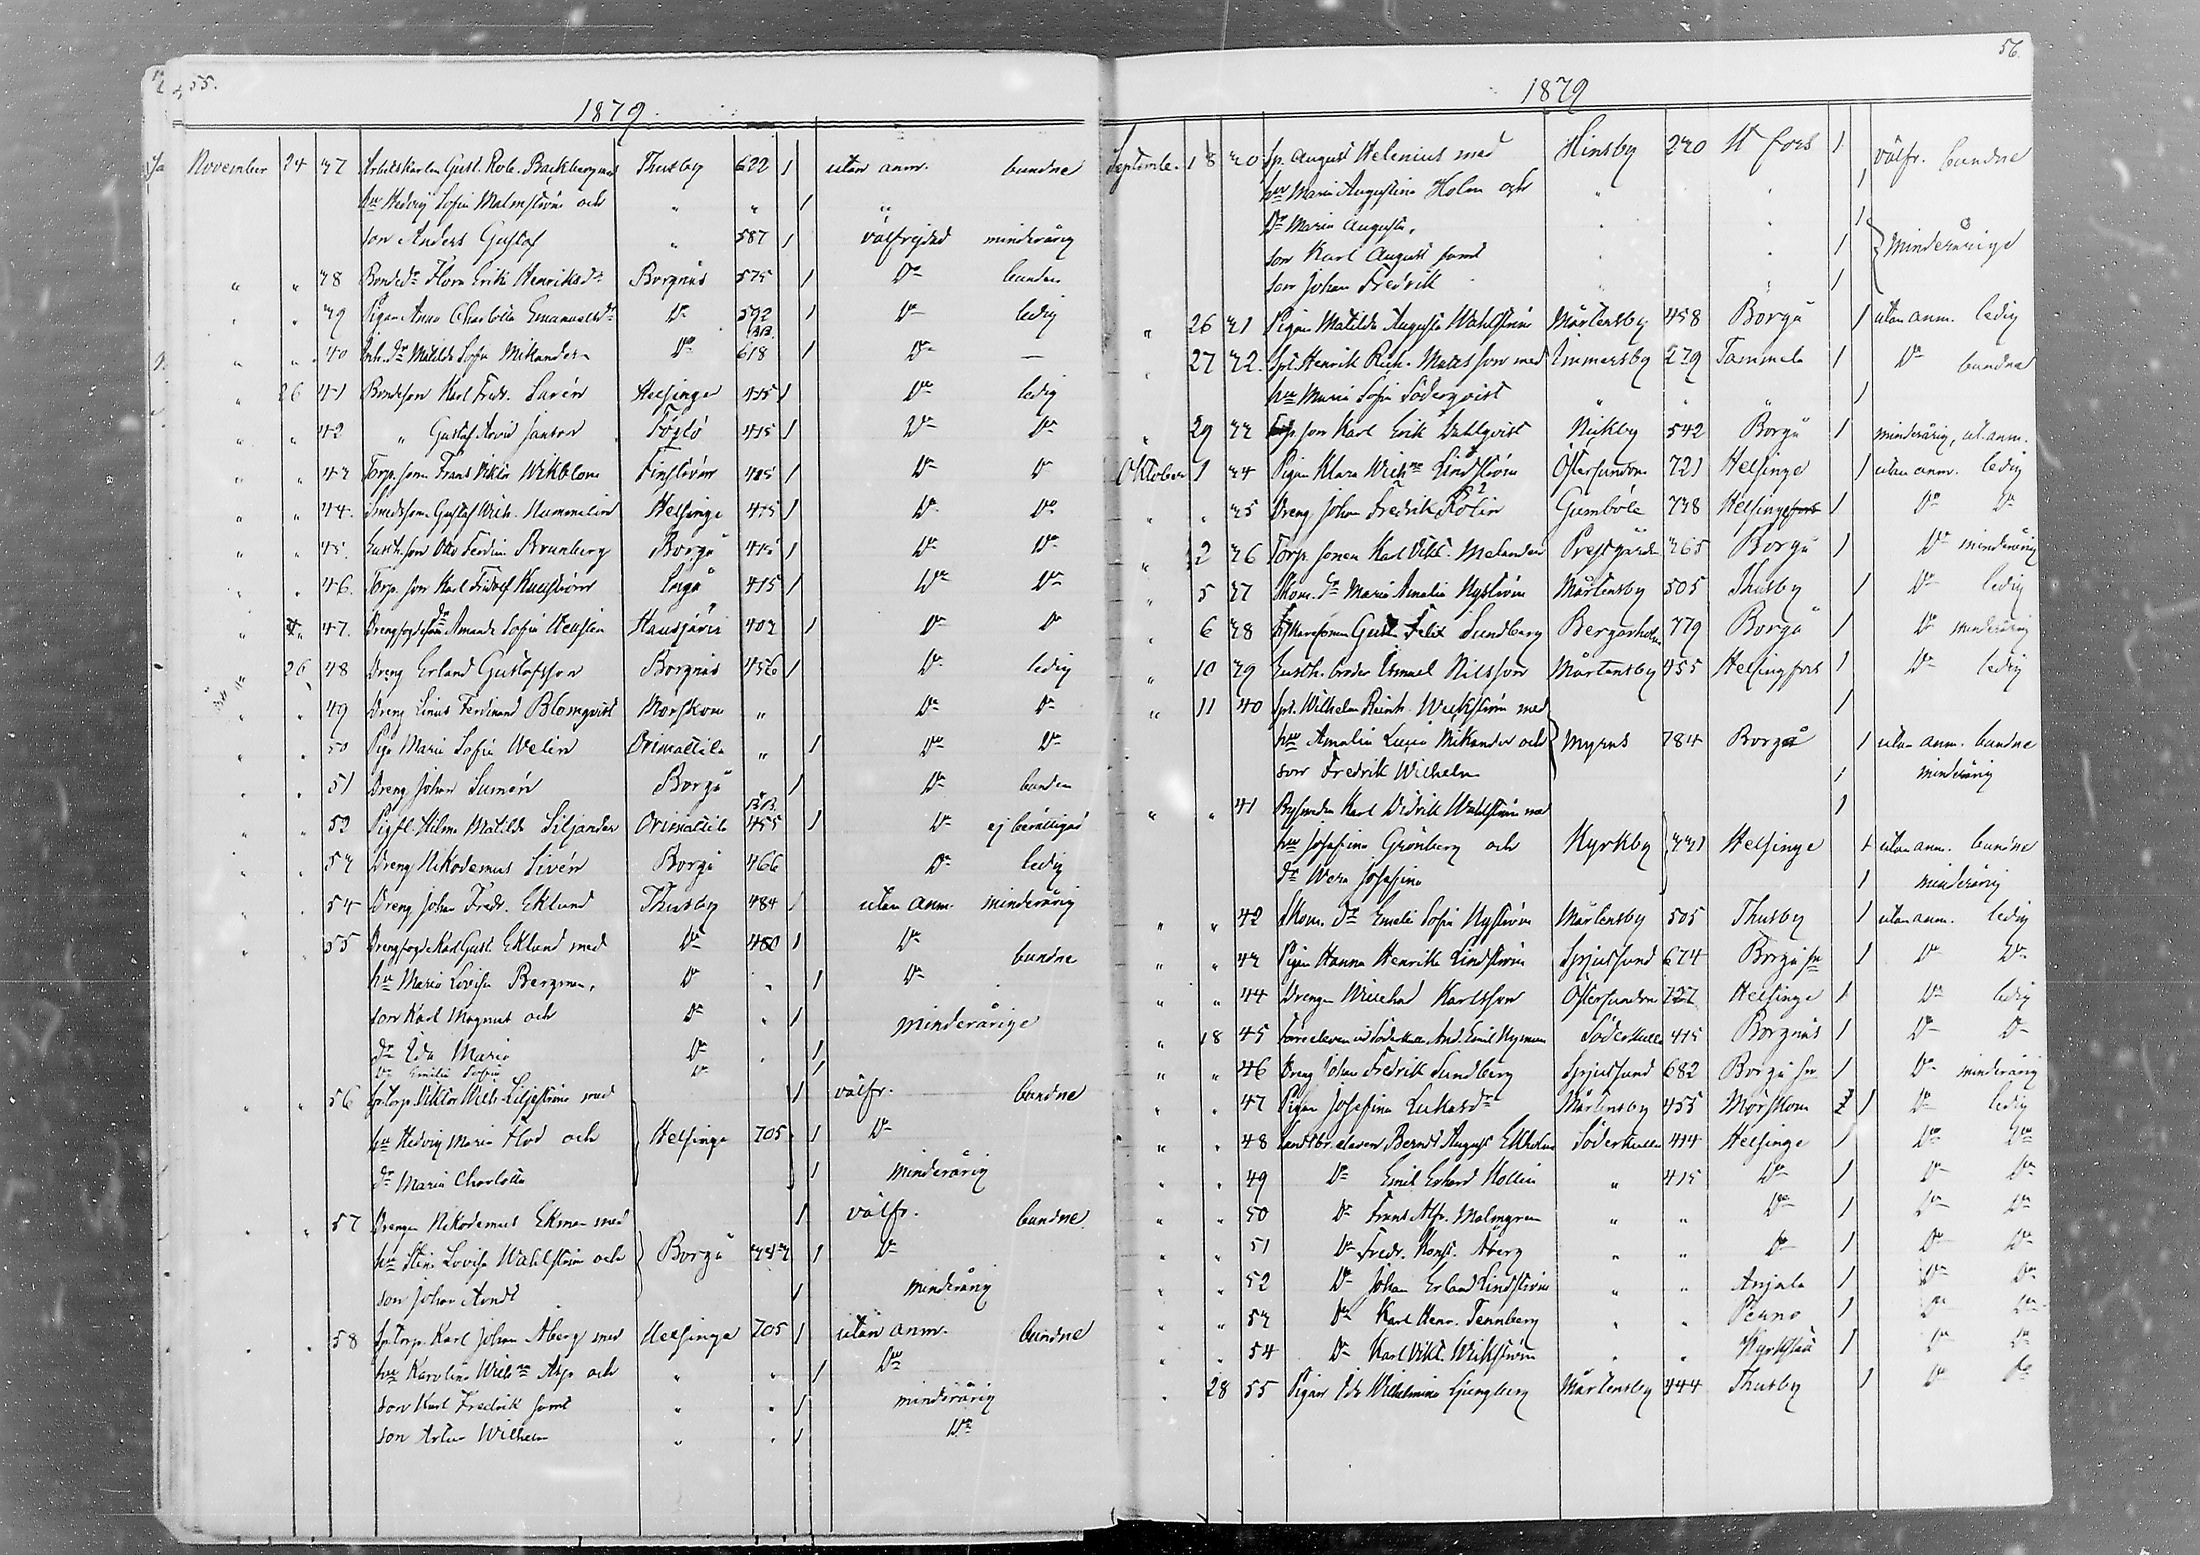 55.
1879.
November 24 37 Arbetskarlen Gust. Rob. Backberg med Thusby 622 1 utan anm. bundne
hu Hedvig Sofia Malmström och " " 1 "
son Anders Gustaf " 587 1 välfrejdad minderårig
" " 38 Bonded:r Flora Erika Henriksd:r Borgnäs 575 1 D:o bunden
" " 39 Pigan Anna Charlotta Emanuelsd:r D:o 592 1 D:o ledig
" " 40 Inh. d:r Matilda Sofia Mikander D:o 618 1 D:o —
" 26 41 Bondeson Karl Fredr. Lurén Helsinge 415 1 D:o ledig
" " 42 " Gustaf Arvid Janson 415 1 D:o D:o
" " 43 Torp. son Frans Viktor Wikblom 415 1 D:o D:o
" " 44. Smedsson Gustaf Wilh. Hummelin Helsinge 415 1 D:o D:o
" " 45. Otto Ferdin. Brunberg Borgå 415 1 D:o D:o
" " 46. Torp. son Karl Fridolf 415 1 D:o D:o
" " 47. Amanda Sofia Hausjärvi 403 1 D:o D:o
" 26 48 Dreng Erland Gustafsson Borgnäs 456 1 D:o ledig
" " 49 Dreng Linus Ferdinand Blomqvist Morskom " D:o D:o
" " 50 Piga Maria Sofia Welin Orimattila " 1 D:o D:o
" " 51 Dreng Johan Sumén Borgå 1 D:o bunden
" " 52 Hilma Matilda Siljander Orimattila 455 1 D:o ej berättigad
" " 53 Dreng Nikodemus Sivén Borgå 466 D:o ledig
" " 54 Dreng Johan Fredr. Eklund Thusby 484 1 utan anm. minderårig
" " 55 Drengfogd. Karl Gust. Eklund med D:o 480 1 D:o bundne
hu Maria Lovisa Bergman, D:o " 1 D:o
son Karl Magnus och D:o " 1 minderårige
d:r Ida Maria D:o " 1
D:o Emilia Sofia D:o 1
" " 56 Sp. torp. Viktor Wilh. Liljeström med 1 välfr. bundne
hu Hedvig Maria Flod och Helsinge 705 1 D:o
d:r Maria Charlotta 1 minderårig
" " 57 Drengen Nikodemus Ekman med 1 välfr. bundne
hu Stina Lovisa Wahlström och Borgå 1 D:o
son Johan Arndt 1 minderårig
" " 58 Sp. torp. Karl Johan Åberg med Helsinge 705 1 utan anm. bundne
hu Karolina Wilh:na Asp och " " 1 D:o
son Karl Fredrik samt " " 1 minderårig
son Artur Wilhelm " " 1 D:o
56.
1879
September 18 30 Sp. August Helenius med Hinsby 230 H fors 1 välfr. bundne
hu Maria Augustina Holm och " " 1
D:r Maria Augusta, " " 1
son Karl August samt " " 1 minderårige
son Johan Fredrik " " 1
" 26 31 Pigan Matilda Augusta Wahlström Mårtensby 458 Borgå 1 utan anm. ledig
" 27 32. Henrik Reinh. Matsson med Immersby 279 Tammela 1 D:o bundne
hu Maria Sofia Söderqvist " " " 1
" 29 33 son Karl Erik Dahlqvist Nickby 542 Borgå 1 minderårig, ut. anm.
Oktober 1 34 Pigan Klara Wilh:na Lindström Östersundom 721 Helsinge 1 utan anm. ledig
" " 35 Dreng Johan Fredrik Rolin Gumböle 738 Helsinge 1 D:o D:o
" 2 36 Torp. sonen Karl Vikt. Melander Prestgården 765 Borgå 1 D:o minderårig
" 5 37 Skom. d:r Maria Amalia Nyström Mårtensby 505 Thusby 1 D:o ledig
" 6 38 Fiskaresonen Gustaf Felix Sundberg 779 Borgå 1 D:o minderårig
" 10 39 Nilsson Mårtensby 455 Helsingfors 1 D:o ledig
" 11 40 Wilhelm Reinh. Weckström med 1
hu Amalia Lucia Mikander och Myras 784 Borgå 1 utan anm. bundne
son Fredrik Wilhelm 1 minderårig
" " 41 Bysmeden Karl Didrik Wahlström med 1
hu Josefina Grönberg och Kyrkby 331 Helsinge 1 utan anm. bundne
d:r Wera Josefina 1 minderårig
" " 42 Skom. d:r Emelie Sofia Nyström Mårtensby 505 Thusby 1 utan anm. ledig
" " 43 Pigan Hanna Henrika Lindström Spjutsund 674 Borgå sn 1 D:o D:o
" " 44 Drengen Karlsson Östersundom 727 Helsinge 1 D:o ledig
" 18 45 And. Emil Nyman Söderkulla 415 Borgnäs 1 D:o D:o
" " 46 Dreng Johan Fredrik Sundberg Spjutsund 682 Borgå sn 1 D:o minderårig
" " 47 Pigan Josefina Lukasd:r Mårtensby 455 Mörskom 1 D:o ledig
" " 48 Landtbr. eleven Bernd August Ekholm Söderkulla 414 Helsinge 1 D:o D:o
" " 49 D:o Emil Erhard Kollin " 415 D:o 1 D:o D:o
" " 50 D:o Frans Alfr. Malmgren " " D:o 1 D:o D:o
" " 51 D:o Fredr. Konst. Åberg " " D:o 1 D:o D:o
" " 52 D:o Johan Erland Lindström " " Anjala 1 D:o D:o
" " 53 D:o Karl Henr. Tennberg " " Perno 1 D:o D:o
" " 54 D:o Karl Vikt. Wikström " " Kyrkslätt 1 D:o D:o
" 28 55 Pigan Ida Wilhelmina Ljungberg Mårtensby 444 Thusby 1 D:o D:o